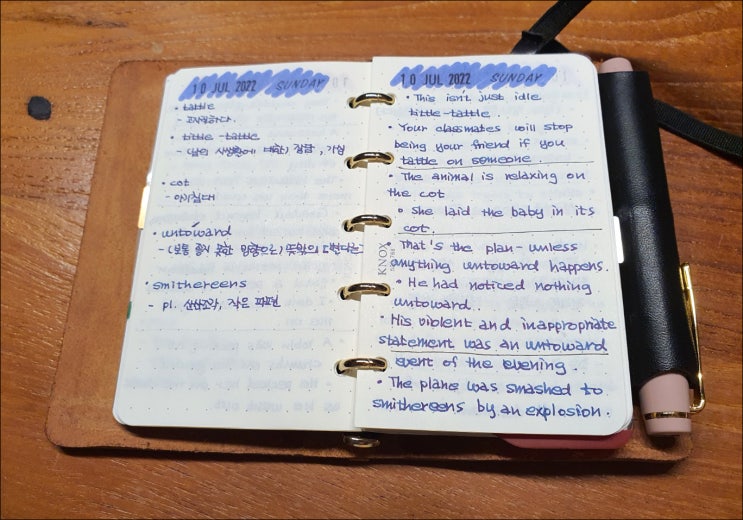 10 JUL 2022 SUNDAY
• tattle
- 고자질하다.
• tittle-tattle
- (남의 사생활에 대한) 잡담, 가십
• cot
- 아기침대
• untoward
- (보통 좋지 못한 방향으로) 뜻밖의
• smithereens
- pl. 산산조각, 작은 파편
10 JUL 2022 SUNDAY
• This isn't just idle
tittle-tattle.
• Your classmates will stop
being your friend if you
tattle on someone.
• The animal is relaxing on
the cot
• She laid the baby in its
cot.
• That's the plan - unless
anything untoward happens.
• He had noticed nothing
untoward.
• His violent and inappropriate
statement was an untoward
event of the evening.
• The plane was smashed to
smithereens by an explosion.
KNOX